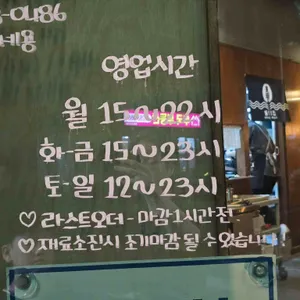 -0486
네몽
영업시간
월 15~22시
화-금 15~23시
토-일 12~23시
♡ 라스트오더 - 마감 1시간 전
♡ 재료소진시 조기마감 될 수 있습니다!